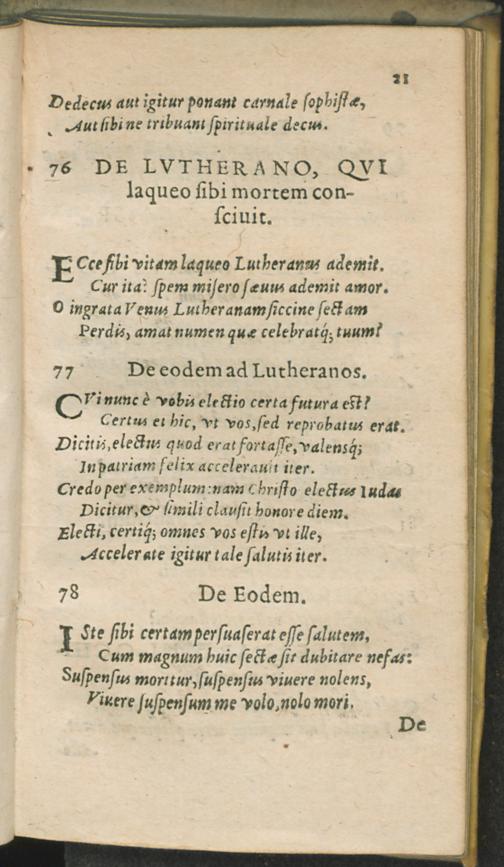 21
Dedecus aut igitur ponant carnale ſophiſtæ,
Aut ſibi ne tribuant ſpirituale decus.
76 DE LVTHERANO, QVI
laqueo ſibi mortem con-
ſciuit.
ECce ſibi vitam laqueo Lutheranus ademit.
Cur ita? ſpem miſero ſæuus ademit amor.
O ingrata Venus Lutheranam ſiccine ſectam
Perdis, amat numen quæ celebratq́; tuum?
77 De eodem ad Lutheranos.
CVi nunc è vobis electio certa futura eſt?
Certus et hic, vt vos, ſed reprobatus erat.
Dicitis, electus quod erat fortaſſe, valensq́;
In patriam felix accelerauit iter.
Credo per exemplum: nam Chriſto electus Iudas
Dicitur, & ſimili clauſit honore diem.
Electi, certiq́; omnes vos eſtis vt ille,
Accelerate igitur tale ſalutis iter.
78 De Eodem.
ISte ſibi certam perſuaſerat eſſe ſalutem,
Cum magnum huic ſectæ ſit dubitare nefas:
Suſpenſus moritur, ſuſpenſus viuere nolens,
Viuere ſuſpenſum me volo, nolo mori.
De